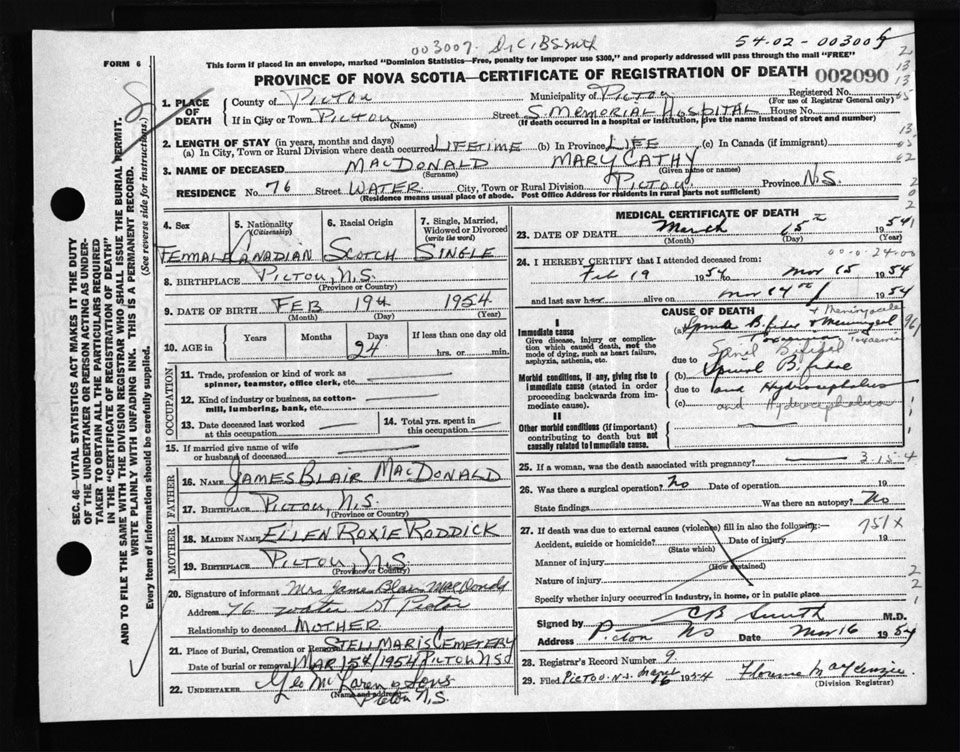 003007 Dr C B Smith
54-02-003005
FORM 6
This form if placed in an envelope, marked "Dominion Statistics—Free, penalty for improper use $300," and properly addressed will pass through the mail "FREE"
PROVINCE OF NOVA SCOTIA—CERTIFICATE OF REGISTRATION OF DEATH 002090
1. PLACE OF DEATH
County of PICTOU Municipality of PICTOU Registered No.
(For use of Registrar General only)
If in City or Town PICTOU Street S. MEMORIAL HOSPITAL House No.
(Name) (If death occurred in a hospital or institution, give the name instead of street and number)
2. LENGTH OF STAY (in years, months and days)
(a) In City, Town or Rural Division where death occurred LIFETIME (b) In Province LIFE (c) In Canada (if immigrant)
3. NAME OF DECEASED MACDONALD MARY CATHY
(Surname) (Given name or names)
RESIDENCE No. 76 Street WATER City, Town or Rural Division PICTOU Province N.S.
(Residence means usual place of abode. Post Office Address for residents in rural parts not sufficient)
4. Sex 5. Nationality (Citizenship) 6. Racial Origin 7. Single, Married, Widowed or Divorced (write the word)
FEMALE CANADIAN SCOTCH SINGLE
8. BIRTHPLACE PICTOU, N.S.
(Province or Country)
9. DATE OF BIRTH FEB 19th 1954
(Month) (Day) (Year)
10. AGE in Years Months Days If less than one day old
24 hrs. or min.
OCCUPATION
11. Trade, profession or kind of work as spinner, teamster, office clerk, etc.
12. Kind of industry or business, as cotton-mill, lumbering, bank, etc.
13. Date deceased last worked at this occupation
14. Total yrs. spent in this occupation
15. If married give name of wife or husband of deceased
FATHER
16. NAME JAMES BLAIR MACDONALD
17. BIRTHPLACE PICTOU, N.S.
(Province or Country)
MOTHER
18. MAIDEN NAME ELLEN ROXIE RODDICK
19. BIRTHPLACE PICTOU, N.S.
(Province or Country)
20. Signature of informant Mrs James Blair MacDonald
Address 76 Water St Pictou
Relationship to deceased MOTHER
21. Place of Burial, Cremation or Removal STELL MARIS CEMETERY
Date of burial or removal MAR 15th 1954 PICTOU N.S.
22. UNDERTAKER Geo McLaren & Sons
(Name and address) Pictou N.S.
MEDICAL CERTIFICATE OF DEATH
23. DATE OF DEATH March 15th 1954
(Month) (Day) (Year)
24. I HEREBY CERTIFY that I attended deceased from:
Feb 19 1954 to Mar 15 1954
and last saw her alive on Mar 14th 1954
CAUSE OF DEATH
I
Immediate cause
Give disease, injury or complication which caused death, not the mode of dying, such as heart failure, asphyxia, asthenia, etc.
(a) Spina Bifida + Meningocele
Toxaemia
due to Spinal Bifida
Morbid conditions, if any, giving rise to immediate cause (stated in order proceeding backwards from immediate cause).
(b) Spinal Bifida
due to and Hydrocephalus
(c) and Hydrocephalus
II
Other morbid conditions (if important) contributing to death but not causally related to immediate cause.
25. If a woman, was the death associated with pregnancy? 3-15-4
26. Was there a surgical operation? No Date of operation 19
State findings Was there an autopsy? No
27. If death was due to external causes (violence) fill in also the following:— 751X
Accident, suicide or homicide? Date of injury 19
(State which)
Manner of injury
(How sustained)
Nature of injury
Specify whether injury occurred in industry, in home, or in public place
Signed by C B Smith M.D.
Address Picton NS Date Mar 16 1954
28. Registrar's Record Number 9
29. Filed PICTOU. N.S. 16 1954 Florence MacKenzie
(Division Registrar)
SEC. 46—VITAL STATISTICS ACT MAKES IT THE DUTY OF THE UNDERTAKER OR PERSON ACTING AS UNDERTAKER TO OBTAIN ALL THE PARTICULARS REQUIRED IN THE "CERTIFICATE OF REGISTRATION OF DEATH" AND TO FILE THE SAME WITH THE DIVISION REGISTRAR WHO SHALL ISSUE THE BURIAL PERMIT.
WRITE PLAINLY WITH UNFADING INK. THIS IS A PERMANENT RECORD.
Every item of information should be carefully supplied. (See reverse side for instructions.)